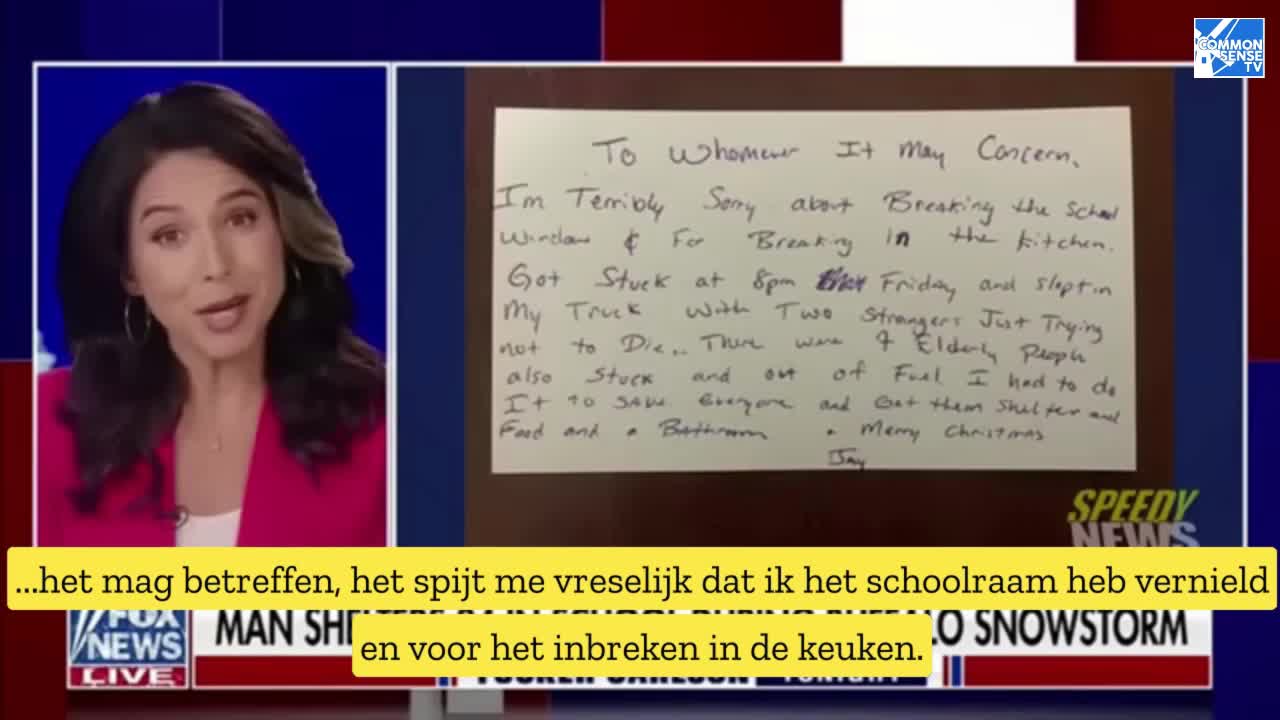 COMMON
SENSE
TV
To Whomever It May Concern.
I'm Terribly Sorry about Breaking the School
Window & For Breaking In the kitchen.
Got Stuck at 8pm Friday and slept in
My Truck with Two Strangers Just Trying
not to Die... There were 7 Elderly People
also Stuck and out of Fuel I had to do
It to save Everyone and Get them Shelter and
Food and a Bathroom . Merry Christmas
Jay
SPEEDY
NEWS
...het mag betreffen, het spijt me vreselijk dat ik het schoolraam heb vernield
en voor het inbreken in de keuken.
FOX
NEWS
LIVE
MAN SHELTERS IN SCHOOL DURING BUFFALO SNOWSTORM
TUCKER CARLSON TONIGHT